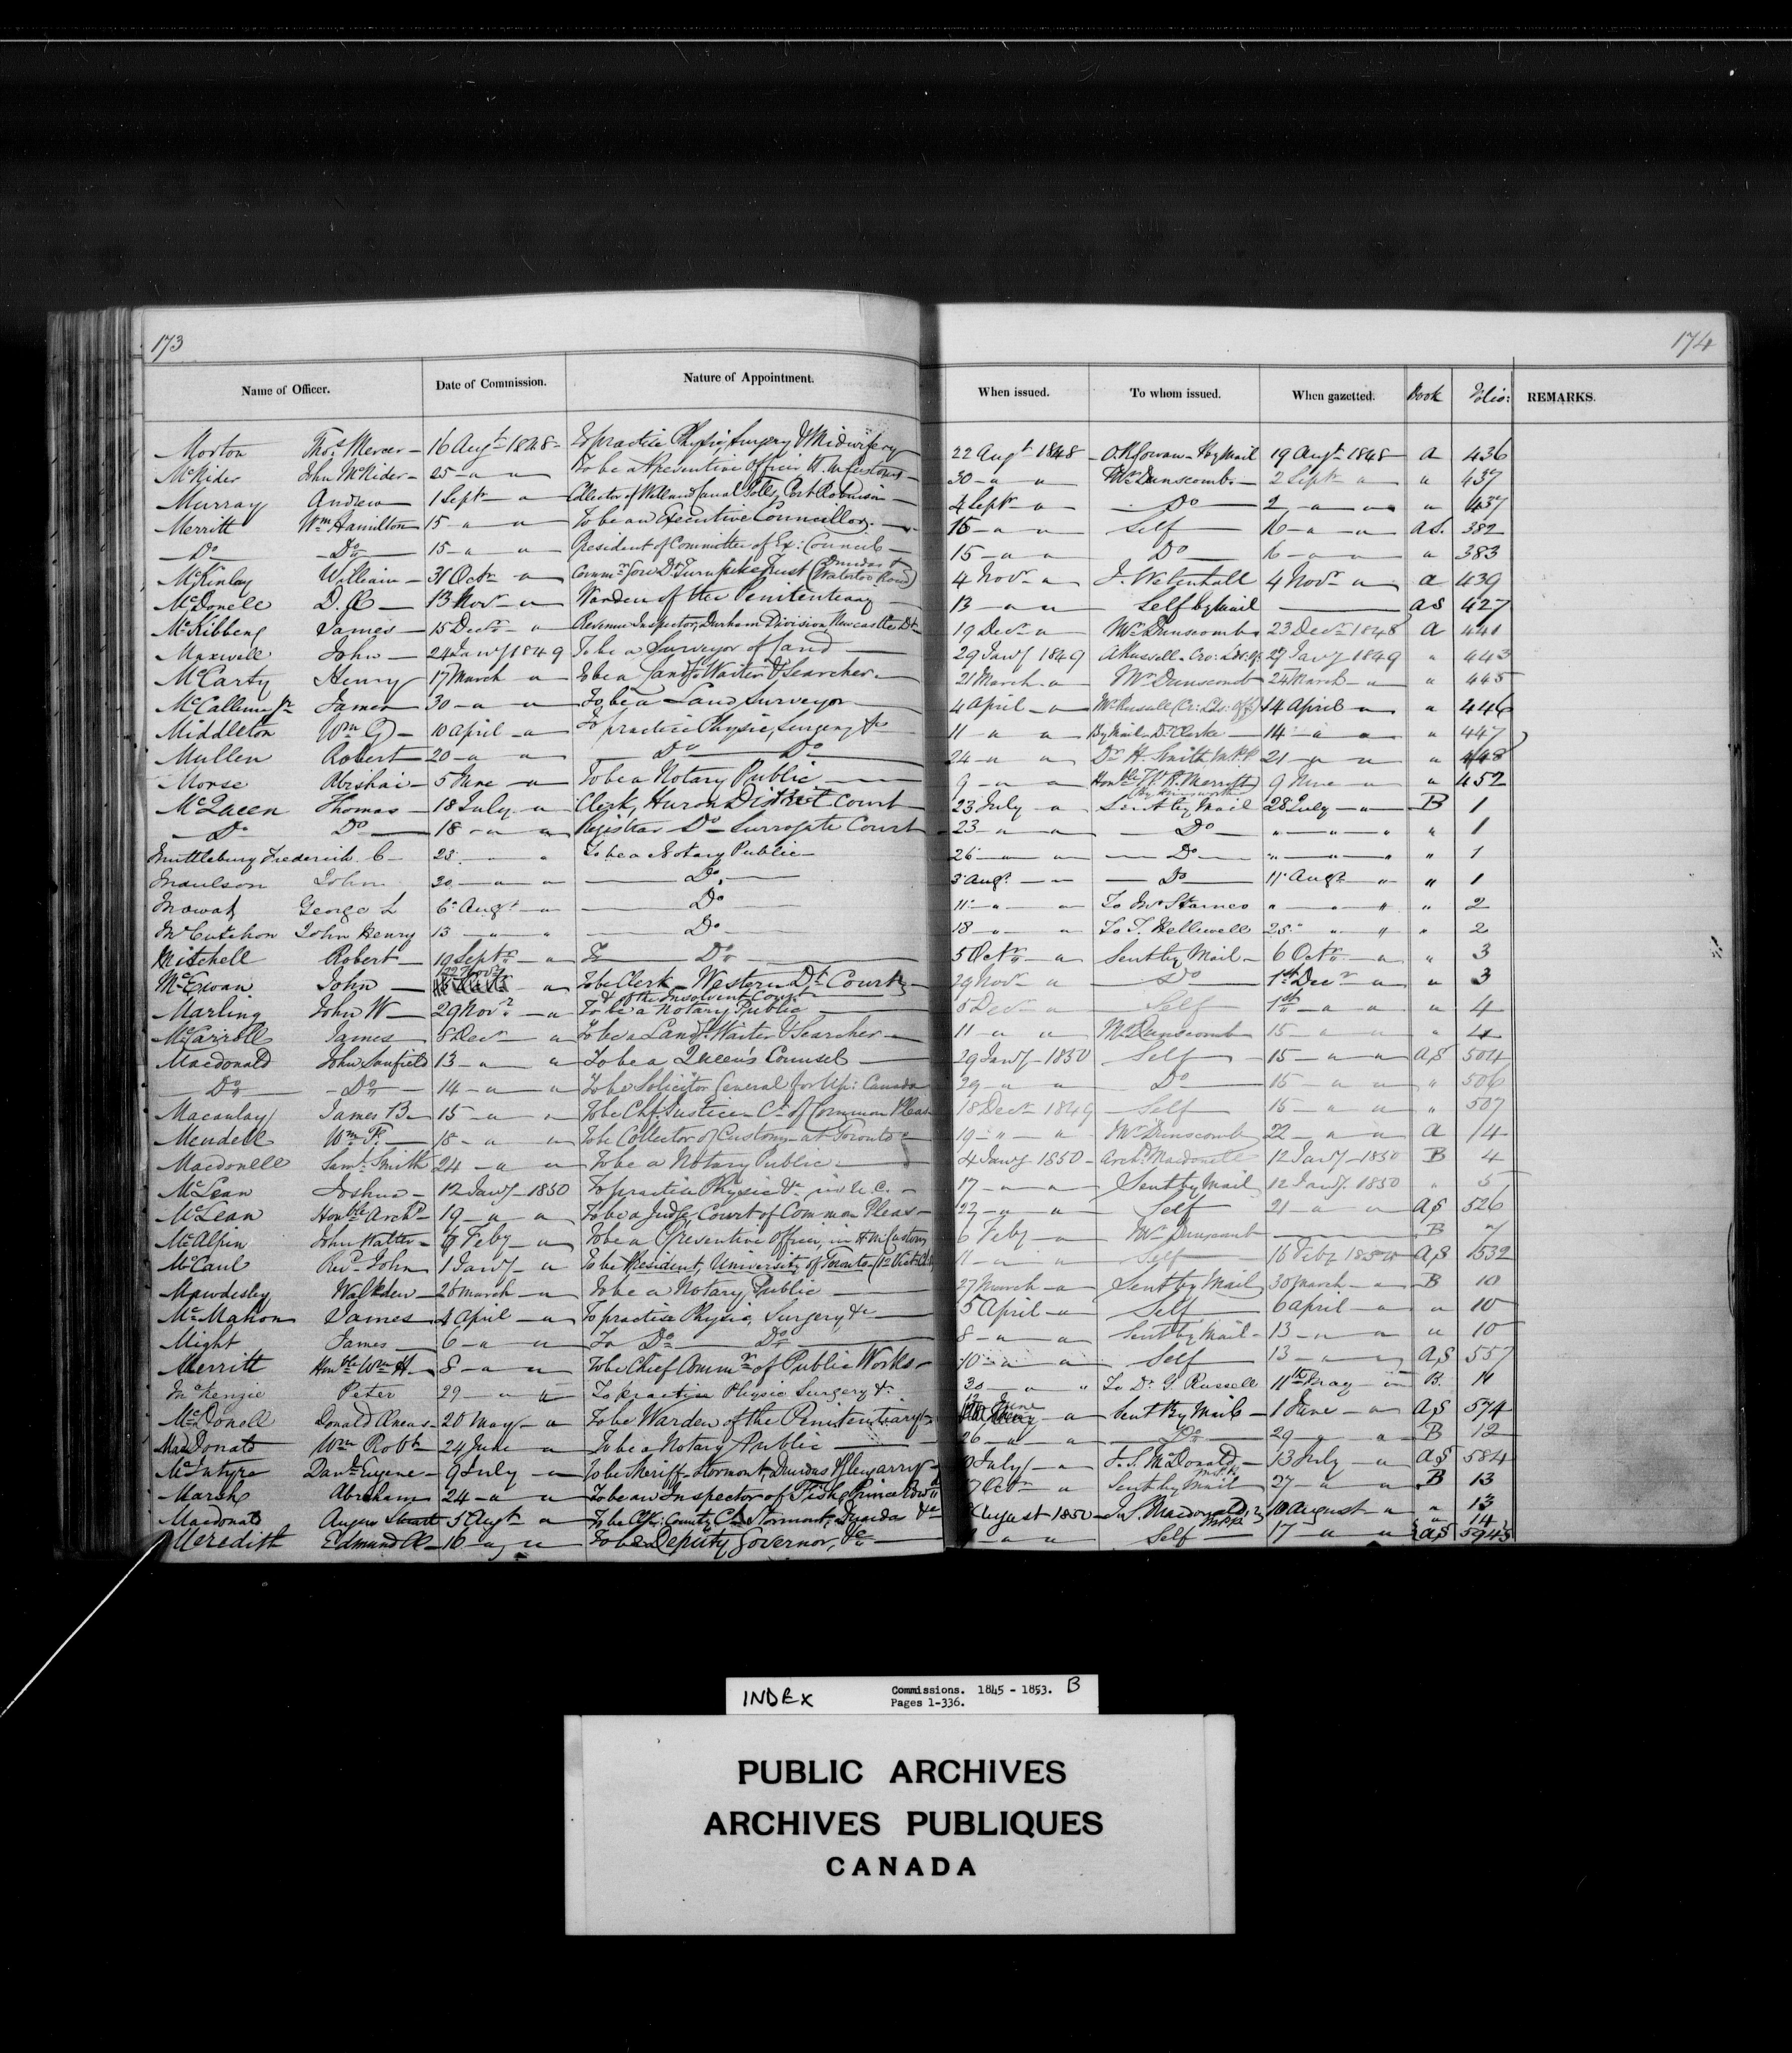 173
174
Name of Officer. Date of Commission. Nature of Appointment. When issued. To whom issued. When gazetted. Book Folio: REMARKS.
Morton Thos. Mercer — 16 Augt 1848 — To practise Physic, Surgery & Midwifery 22 Augt 1848 — By Mail 19 Augt 1848 a 436
McNider John McNider — 25 — " " To be a Preventive Officer H. M. Customs — 30 — " " Mr Dunscomb — 2 Septr " " 437
Murray Andrew — 1 Septr — " Collector of Welland Canal Tolls, Port Robinson — 4 Septr — " Do 2 — " " " 437
Merritt Wm Hamilton 15 — " " To be an Executive Councillor — 15 — " " Self 16 — " " as. 382
Do Do 15 — " " President of Committee of Ex: Council — 15 — " " Do 16 — " " " 383
McKinlay William — 31 Octr — " Commr Gore Dt Turnpike Trust (Dundas & Waterloo Road) 4 Novr " J. Wetenhall 4 Novr " a 439
McDonell D. Æ — 13 Novr — " Warden of the Penitentiary — 13 — " " Self by Mail — as 427
McKibbeng James — 15 Decr — " Revenue Inspector, Durham Division, Newcastle Dt — 19 Decr " Mr Dunscomb 23 Decr 1848 a 441
Maxwell John — 24 Jany 1849 To be a Surveyor of Land — 29 Jany 1849 A Russell 27 Jany 1849 " 443
McCarty Henry 17 March — " To be a Landg Waiter & Searcher — 21 March — " Mr Dunscomb 24 March — " " 445
McCallum Jr James 30 — " " To be a Land Surveyor 4 April — " Mr Russell 14 April — " " 446
Middleton Wm G — 10 April — " To practise Physic, Surgery &c 11 — " " By Mail Dr Clarke — 14 — " " " 447
Mullen Robert — 20 — " " Do Do 24 — " " Dr H. Smith M.P.P 21 — " " " 448
Morse Abishai — 5 June — " To be a Notary Public — 9 — " " Honble W. H. Merritt 9 June — " " 452
McQueen Thomas — 18 July — " Clerk, Huron District Court 23 July " Sent by Mail 28 July — " B 1
Do Do — 18 — " " Registrar Do Surrogate Court 23 — " " Do " — " " " 1
Muttlebury Frederick C — 23 — " " To be a Notary Public — 26 — " " Do " — " " " 1
Moulson John 30 — " " Do 3 Augt — " Do 11 Augt " " 1
Mowat George L 6 Augt — " Do 11 — " " To Mr Starnes " — " " " 2
McCutchon John Henry 13 — " " Do 18 — " " To T. Helliwell 25 " " " 2
Mitchell Robert — 19 Septr — " To Do 5 Octr — " Sent by Mail — 6 Octr — " " 3
McEwan John — 22 Novr " To be Clerk — Western Dt Court & of the Insolvent Court 29 Novr " Do 1st Decr " " 3
Marling John W — 29 Novr — " To be a Notary Public — 5 Decr " Self 1st " " " 4
McCarroll James — 8 Decr " To be a Landg Waiter & Searcher — 11 — " " Mr Dunscomb 15 — " " " 4
Macdonald John Sanfield 13 — " " To be a Queen's Counsel — 29 Jany 1850 Self 15 — " " as 504
Do Do — 14 — " " To be Solicitor General for Up: Canada 29 — " " Do 15 — " " " 506
Macaulay James B — 15 — " " To be Chf. Justice Ct of Common Pleas 18 Decr 1849 Self 15 — " " " 507
Mendell Wm F. — 15 — " " To be Collector of Customs at Toronto — 19 — " " Mr Dunscomb 22 — " " a 14
Macdonell Saml Smith 24 — " " To be a Notary Public — 4 Jany 1850 — Archd Macdonell 12 Jany — 1850 B 4
McLean Joshua — 12 Jany — 1850 To practise Physic &c in U.C. — 17 — " " Sent by Mail 12 Jany. 1850 " 5
McLean Honble Archd — 19 — " " To be a Judge, Court of Common Pleas — 22 — " " Self 21 — " " as 526
McAlpin John Walter — 4 Feby — " To be a Preventive Officer, in H M Customs 6 Feby — " Mr Dunscomb — B 7
McCaul Revd John 1 Jany — " To be President, University of Toronto 11 — " " Self 16 Feby 1850 as 532
Mawdesley Walkden — 26 March — " To be a Notary Public — 27 March — " Sent by Mail 30 March — " B 10
McMahon James 4 April — " To practise Physic, Surgery &c 5 April — " Self 6 April — " " 10
Might James 6 — " " To Do Do 8 — " " Sent by Mail — 13 — " " " 10
Merritt Honble Wm H 8 — " " To be Chief Commr of Public Works — 10 — " " Self 13 — " " as 557
McKenzie Peter 29 — " " To practise Physic Surgery &c. 30 — " " To Dr. G. Russell 11th May — " B. 11
McDonell Donald Æneas 20 May — " To be Warden of the Penitentiary — 12 June — " Sent By Mail — 1 June — " as 574
MacDonald Wm Robt 24 June — " To be a Notary Public — 26 — " " Do 29 — " B 12
McIntyre Danl Eugene — 9 July — " To be Sheriff Stormont, Dundas & Glengarry — July — " J. S. McDonald, M.P.P. 13 July — " as 584
Marsh Abraham 24 — " " To be an Inspector of Fish, Prince Edwd 7 Octr " Sent by Mail 27 — " " B 13
Macdonald Angus 5 Augt " To be Clk: County Ct Stormont, Dundas &c August 1850 J. S. Macdonald, M.P.P. 10 August — " " 13
14
Meredith Edmund A — 16 — " " To be Deputy Governor, &c — " " Self 17 — " " as 594
INDEX Commissions. 1845 - 1853. B
Pages 1-336.
PUBLIC ARCHIVES
ARCHIVES PUBLIQUES
CANADA